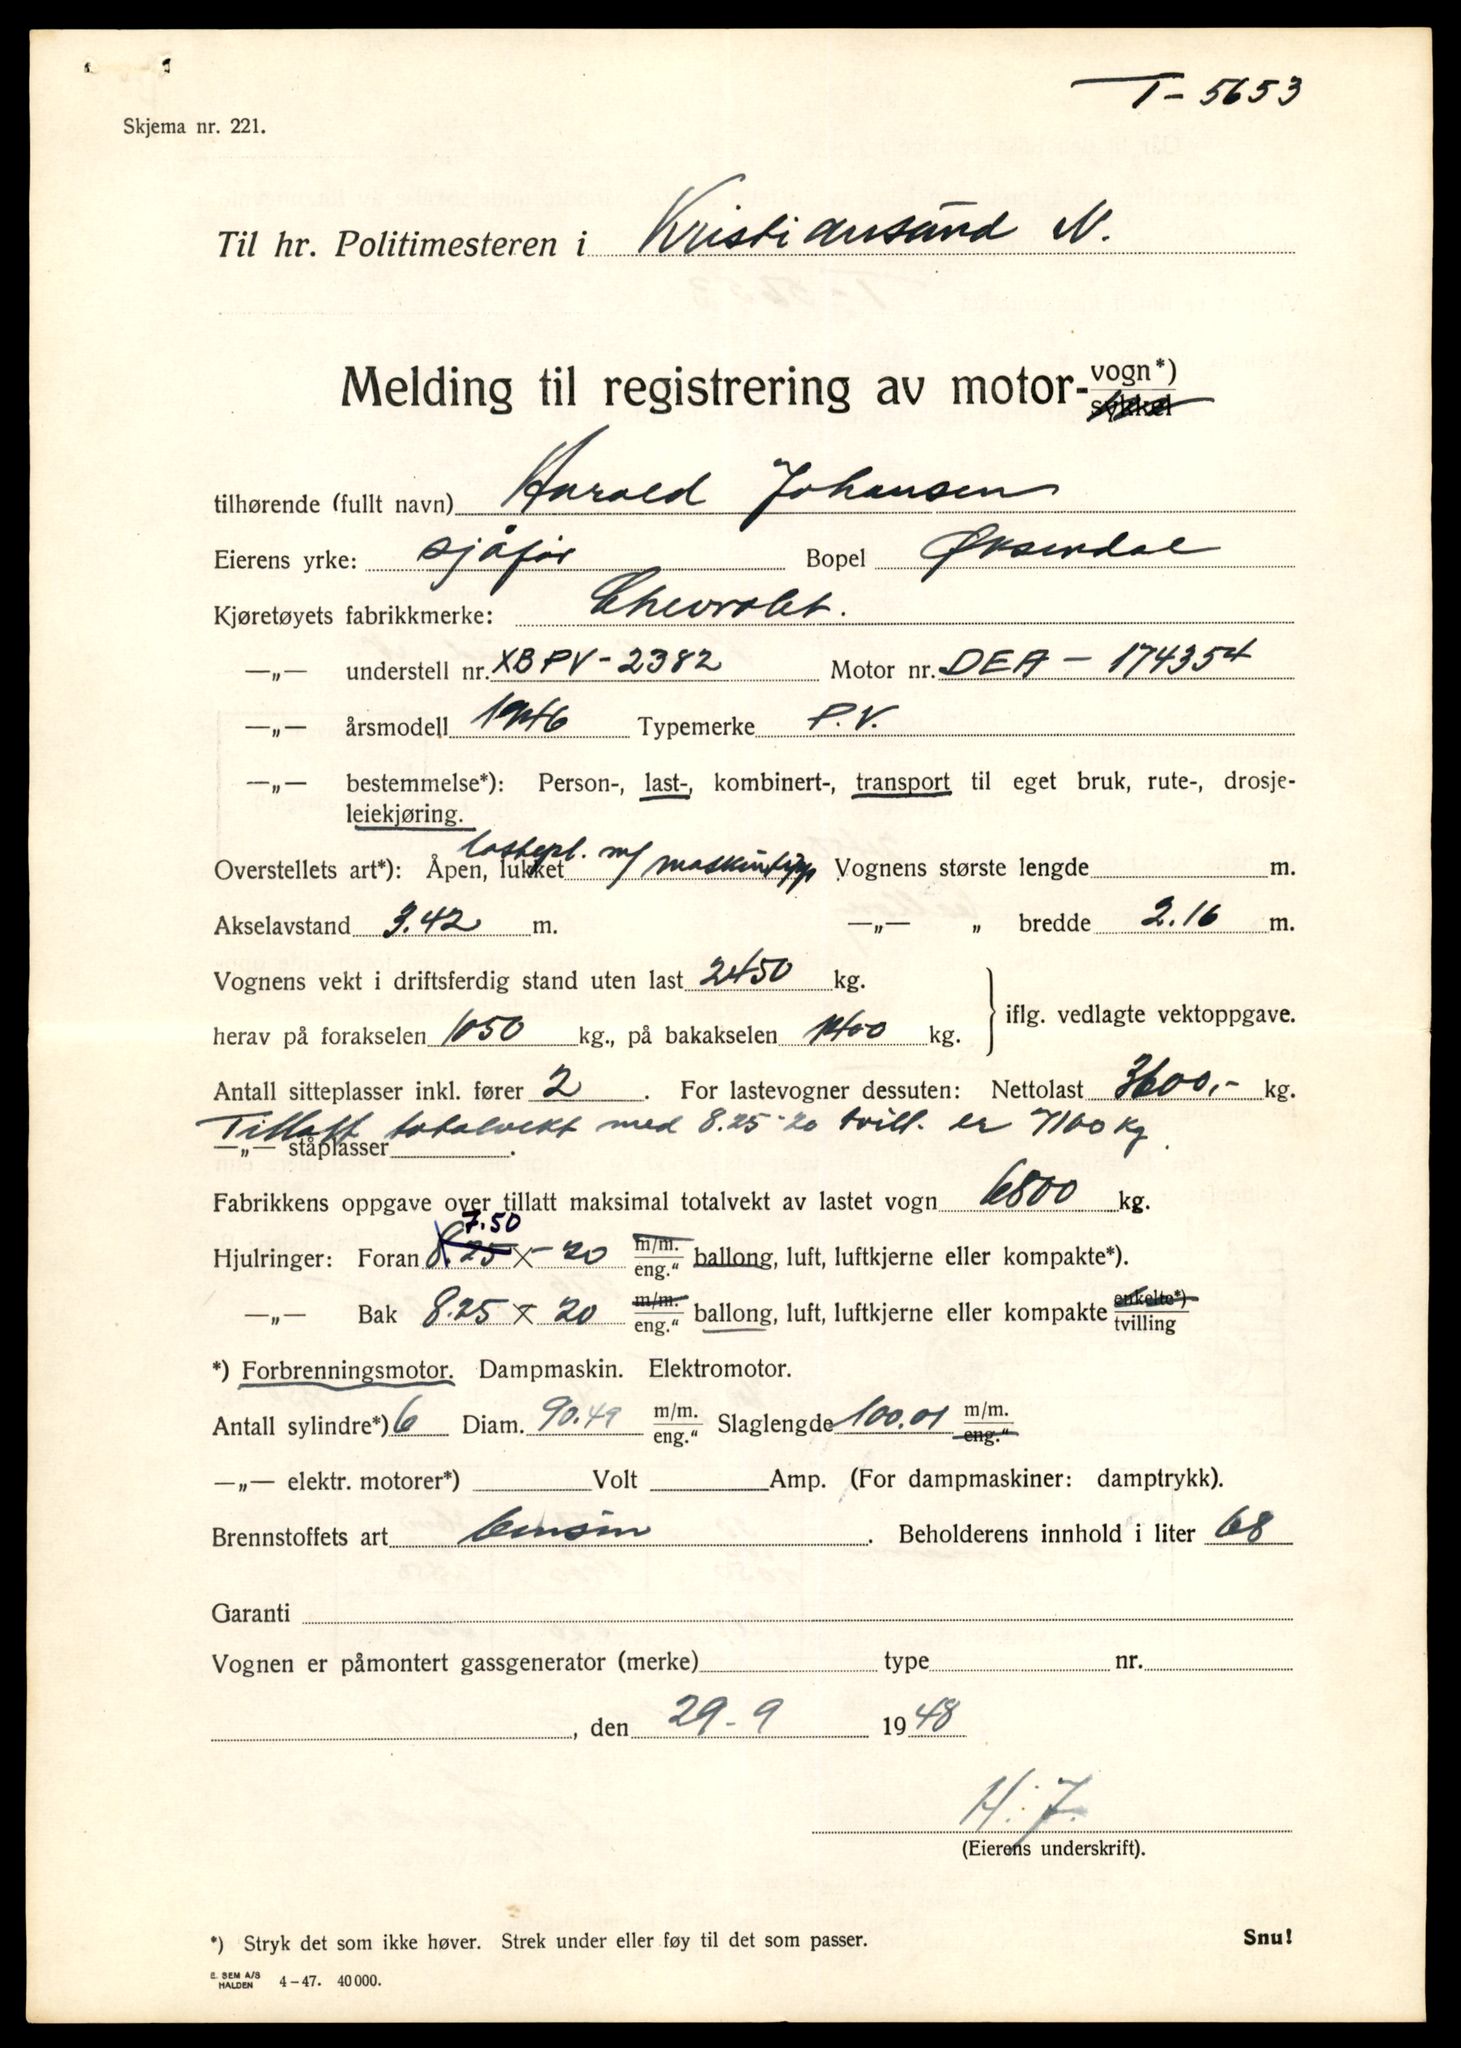 T-5653
Skjema nr. 221.
Til hr. Politimesteren i Kristiansund N.
Melding til registrering av motor-vogn*)
sykkel
tilhørende (fullt navn) Harald Johansen
Eierens yrke: sjåfør Bopel Øksendal
Kjøretøyets fabrikkmerke: Chevrolet.
—„— understell nr. XBPV-2382 Motor nr. DEA - 174354
—„— årsmodell 1946 Typemerke P.V.
—„— bestemmelse*): Person-, last-, kombinert-, transport til eget bruk, rute-, drosje-
leiekjøring.
Overstellets art*): Åpen, lukket lastepl. m/ maskintipp Vognens største lengde m.
Akselavstand 3.42 m. —„— „ bredde 2.16 m.
Vognens vekt i driftsferdig stand uten last 2450 kg.
herav på forakselen 1050 kg., på bakakselen 1400 kg. iflg. vedlagte vektoppgave.
Antall sitteplasser inkl. fører 2. For lastevogner dessuten: Nettolast 3600,- kg.
Tillatt totalvekt med 8.25-20 tvill. er 7100 kg.
—„— ståplasser .
Fabrikkens oppgave over tillatt maksimal totalvekt av lastet vogn 6800 kg.
7.50
Hjulringer: Foran 8.25 x - 20 m/m. eng.“ ballong, luft, luftkjerne eller kompakte*).
—„— Bak 8.25 x 20 m/m. eng.“ ballong, luft, luftkjerne eller kompakte enkelte*) tvilling
*) Forbrenningsmotor. Dampmaskin. Elektromotor.
Antall sylindre*) 6 Diam. 90.49 m/m. eng.“ Slaglengde 100.01 m/m. eng.“
—„— elektr. motorer*) Volt Amp. (For dampmaskiner: damptrykk).
Brennstoffets art bensin. Beholderens innhold i liter 68
Garanti
Vognen er påmontert gassgenerator (merke) type nr.
, den 29-9 1948
H. J.
(Eierens underskrift).
*) Stryk det som ikke høver. Strek under eller føy til det som passer. Snu!
E. SEM A/S
HALDEN 4-47. 40000.